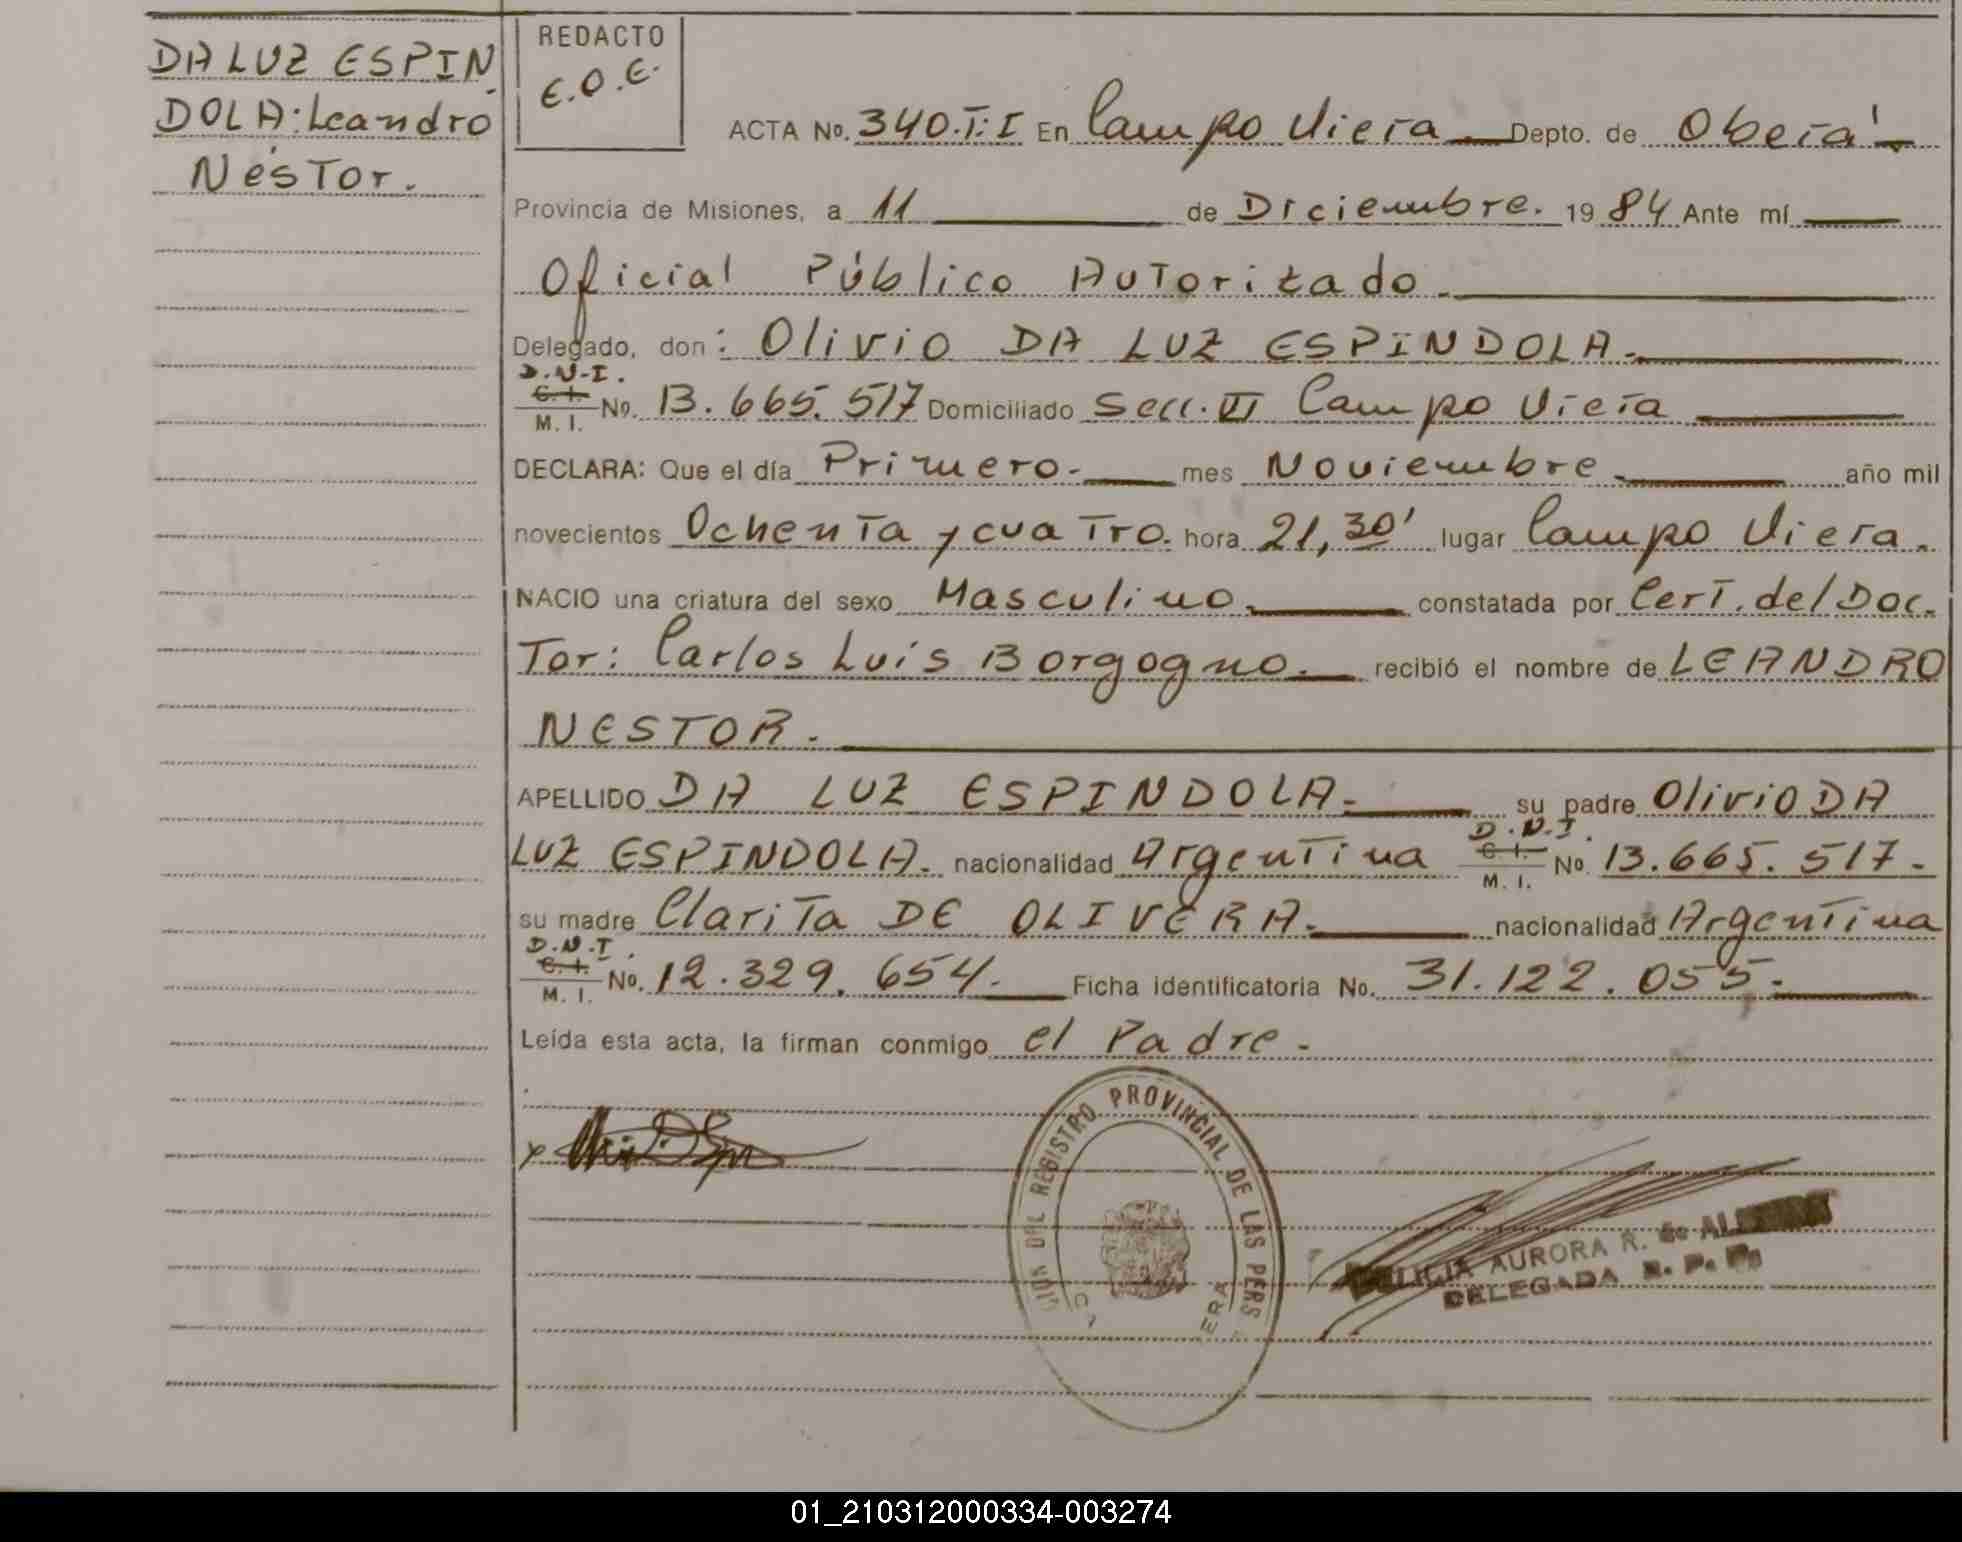 DA LUZ ESPIN
DOLA: Leandro
Néstor.
REDACTO
E.O.E.
ACTA No. 340.T:I En Campo Viera Depto. de Oberá
Provincia de Misiones, a 11 de Diciembre. 1984 Ante mí
Oficial Público Autorizado.
Delegado, don: Olivio DA LUZ ESPINDOLA.
D.N.I.
C. I.
M. I.
No. 13.665.517 Domiciliado Secc. VI Campo Viera
DECLARA: Que el día Primero. mes Noviembre. año mil
novecientos Ochenta y cuatro. hora 21,30' lugar Campo Viera.
NACIO una criatura del sexo Masculino. constatada por Cert. del Doc.
Tor: Carlos Luis Borgogno. recibió el nombre de LEANDRO
NESTOR.
APELLIDO DA LUZ ESPINDOLA. su padre Olivio DA
LUZ ESPINDOLA. nacionalidad Argentina D.N.I. C. I. M. I. No. 13.665.517.
su madre Clarita DE OLIVERA. nacionalidad Argentina
D.N.I.
C. I.
M. I.
No. 12.329.654. Ficha identificatoria No. 31.122.055.
Leída esta acta, la firman conmigo el Padre.
REGISTRO PROVINCIAL DE LAS PERS
ERA
AURORA R. de
DELEGADA R. P. P.
01_210312000334-003274